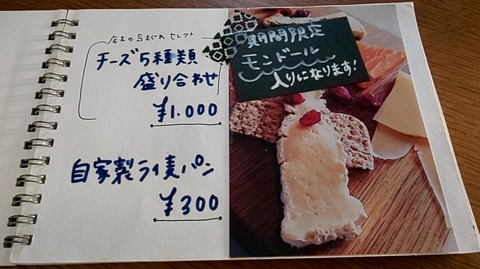 店主の気まぐれセレクト
チーズ5種類
盛り合わせ
¥1.000
自家製ライ麦パン
¥300
期間限定
モンドール
入りになります!